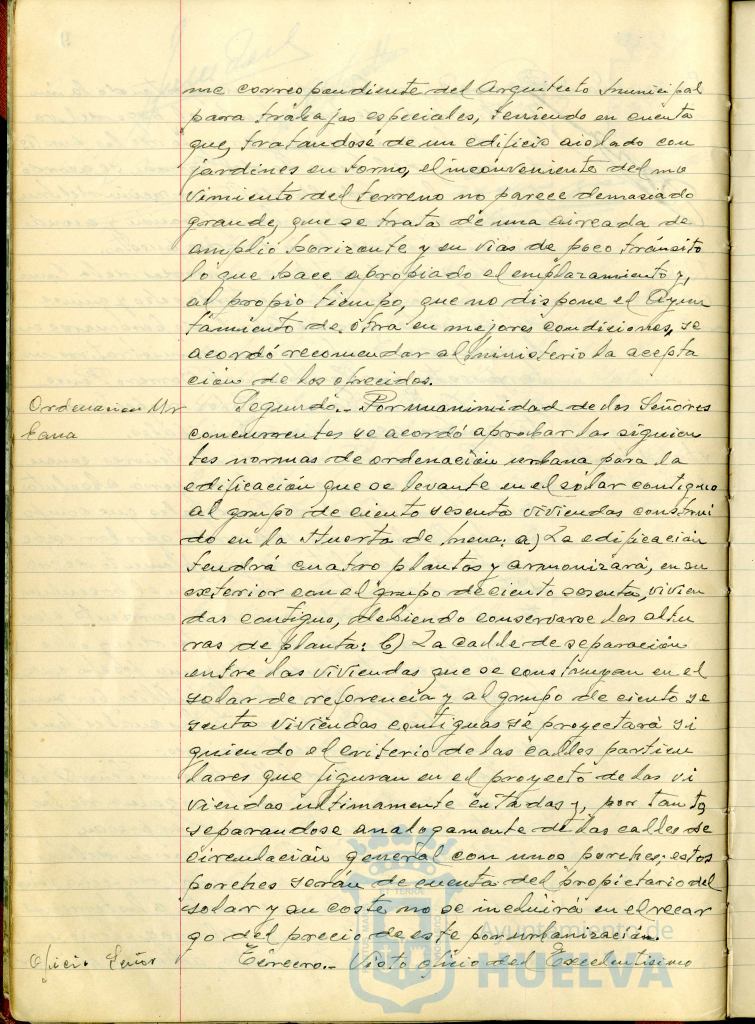 me correspondiente del Arquitecto municipal
para trabajos especiales, teniendo en cuenta
que, tratandose de un edificio aislado con
jardines en torno, el inconveniente del mo
vimiento del terreno no parece demasiado
grande, que se trata de una aireada de
amplio horizonte y en vias de poco tránsito
lo que hace apropiado el emplazamiento y,
al propio tiempo, que no dispone el Ayun
tamiento de otra en mejores condiciones, se
acordó recomendar al ministerio la acepta
ción de los ofrecidos.
Ordenacion Ur
bana
Segundo.- Por unanimidad de los Señores
concurrentes se acordó aprobar las siguien
tes normas de ordenación urbana para la
edificación que se levante en el solar contiguo
al grupo de ciento sesenta viviendas construi
do en la Huerta de Mena: a) La edificación
tendrá cuatro plantas y armonizará, en su
exterior con el grupo de ciento sesenta, vivien
das contiguo, debiendo conservarse las altu
ras de planta: b) La calle de separación
entre las viviendas que se construyan en el
solar de referencia y al grupo de ciento se
senta viviendas contiguas se proyectará si
guiendo el criterio de las calles particu
lares que figuran en el proyecto de las vi
viendas ultimamente citadas y, por tanto,
separandose analogamente de las calles de
circulación general con unos porches; estos
porches serán de cuenta del propietario del
solar y su coste no se incluirá en el recar
go del precio de este por urbanización.
Oficio Señor
Tercero.- Visto oficio del Excelentisimo
Ayuntamiento de
HUELVA